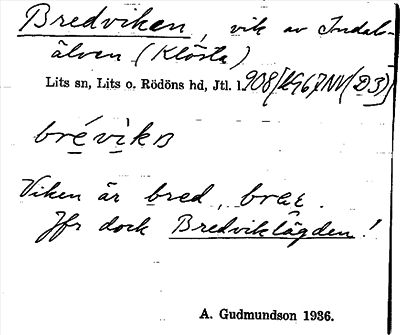 Bredviken, vik av Indals-
älven (Klösta)
Lits sn, Lits o. Rödöns hd, Jtl. l.908[
brévikʙ
Viken är bred, bræɛ.
Jfr dock Bredviklägden!
A. Gudmundson 1936.